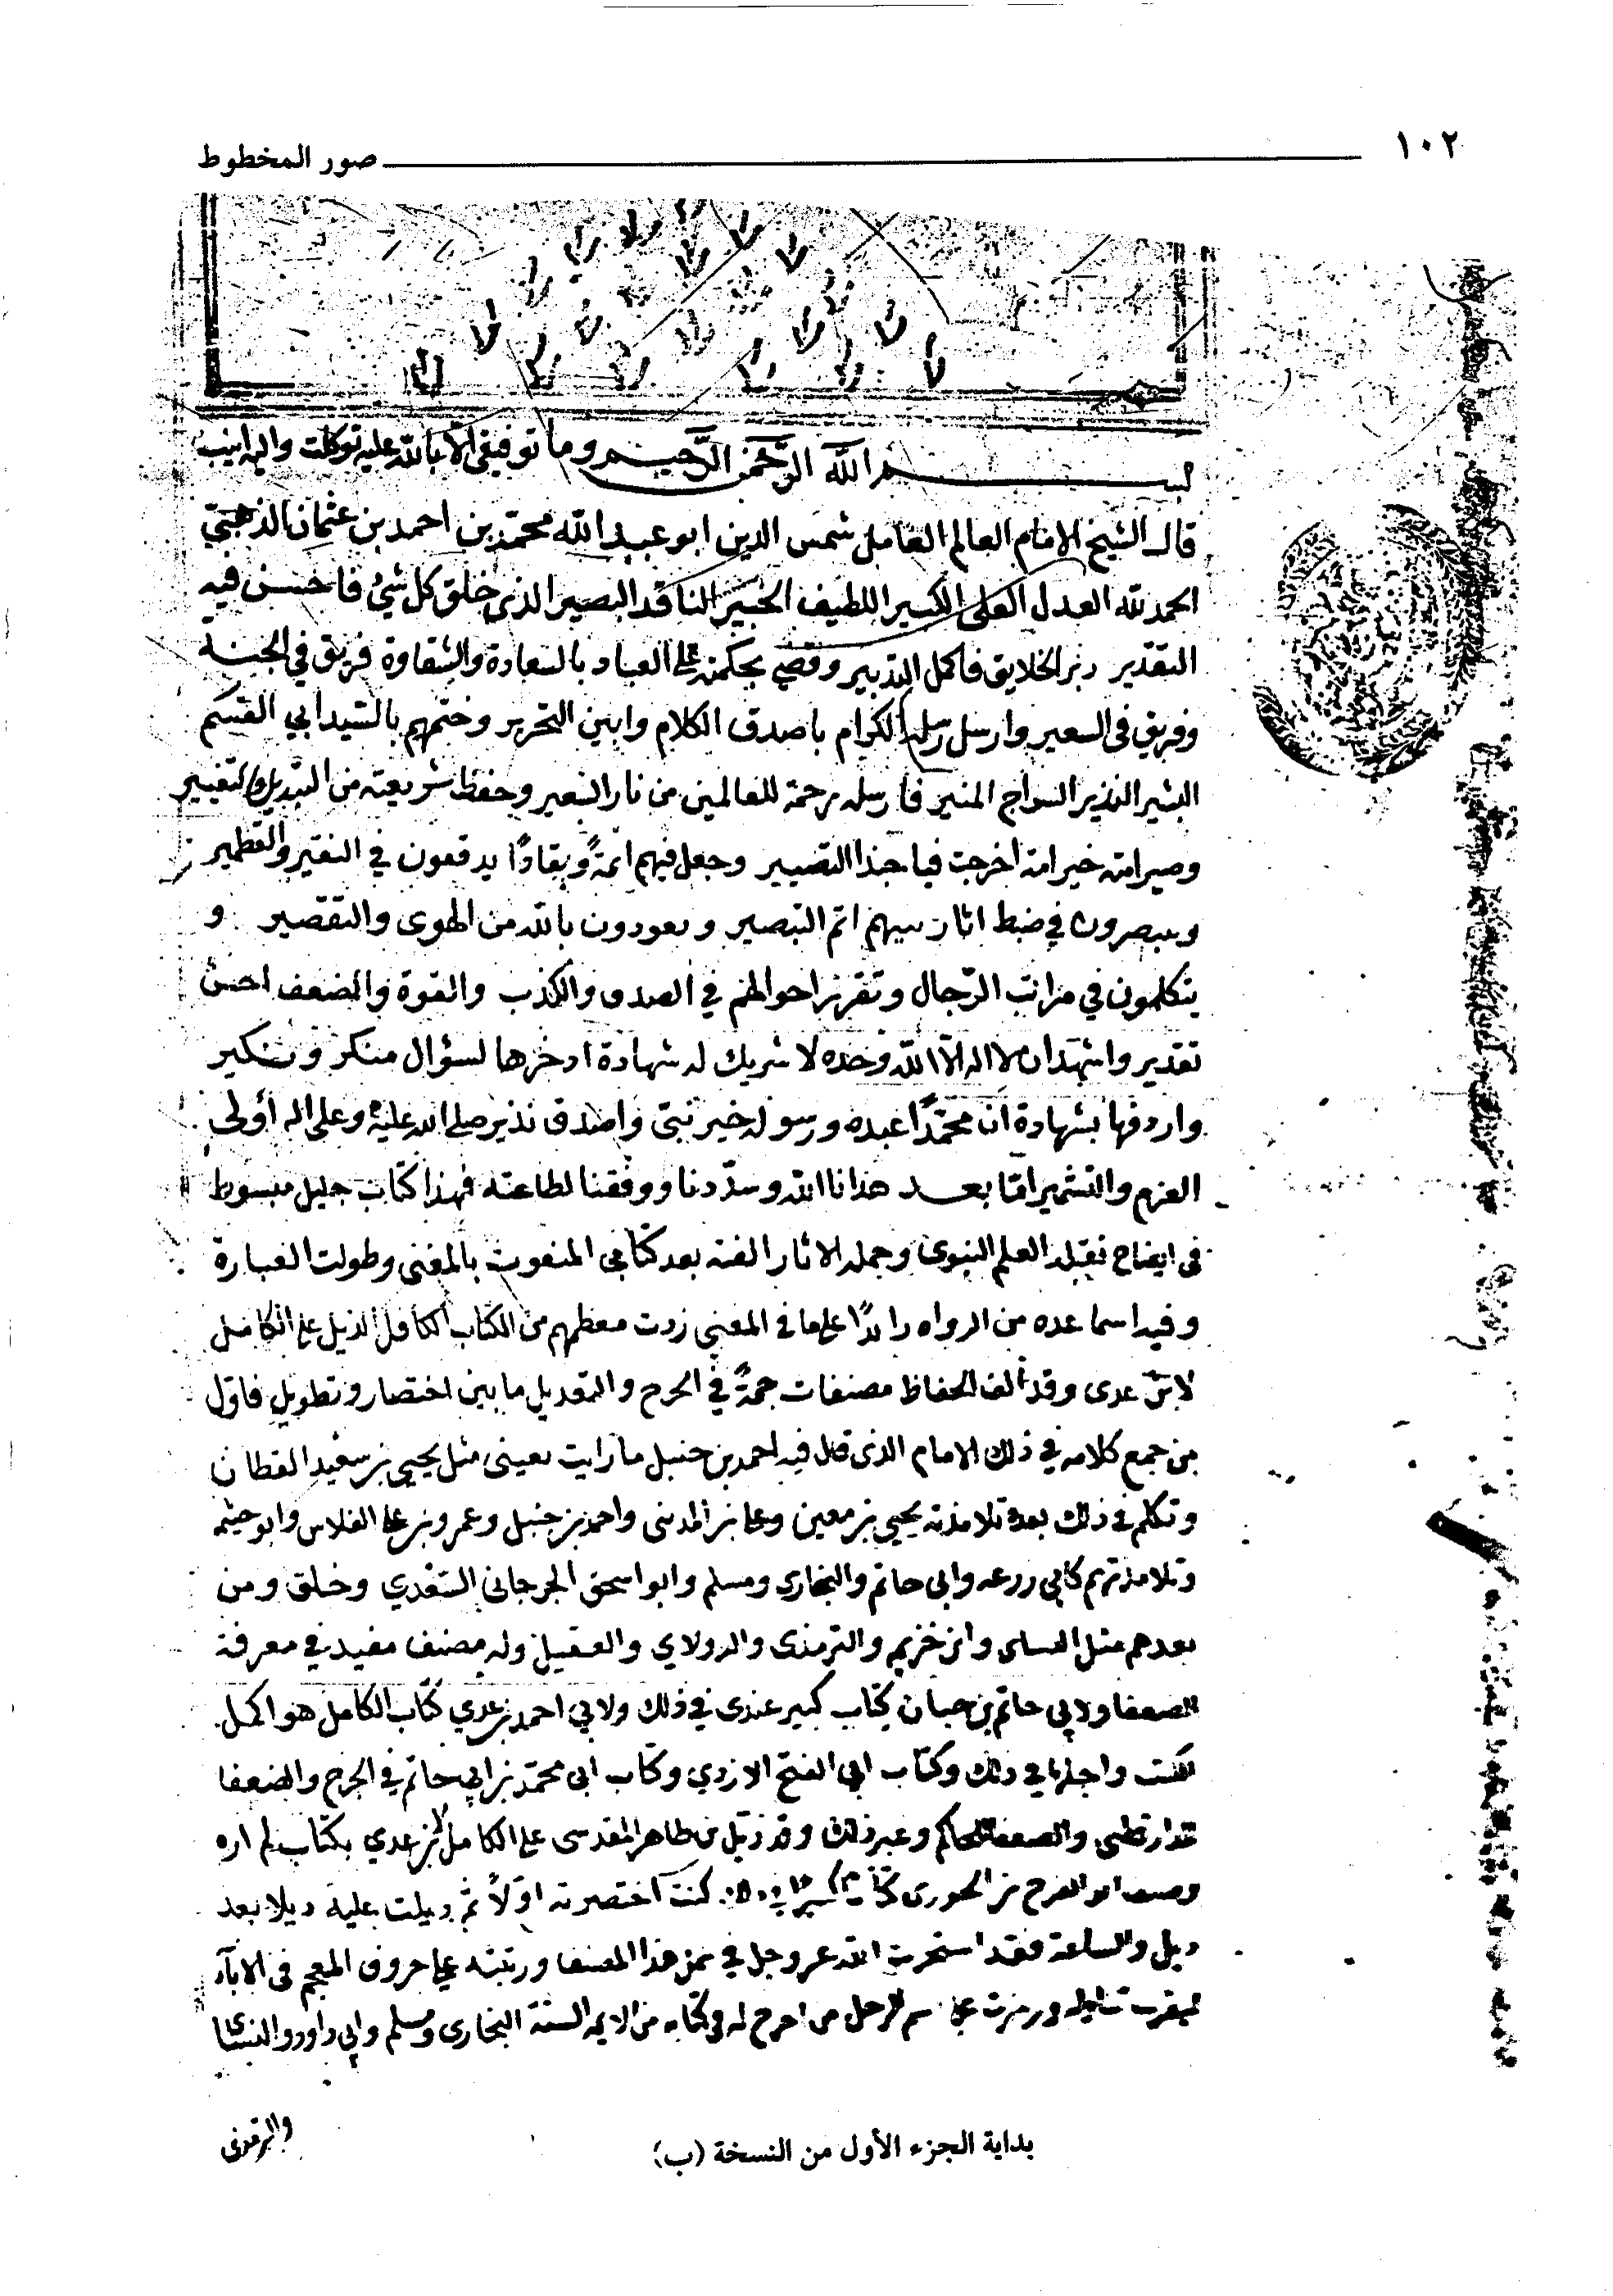 ١٠٢
صور المخطوط
بسم الله الرحمن الرحيم وما توفيقي الا بالله عليه توكلت واليه انيب
قال الشيخ الامام العالم العامل شمس الدين ابو عبد الله محمد بن احمد بن عثمان الذهبي
الحمد لله العدل العلي الكبير اللطيف الخبير الناقد البصير الذي خلق كل شئ فاحسن فيه
التقدير ودبر الخلايق فاكمل التدبير وقضى بحكمته على العباد بالسعادة والشقاوة فريق في الجنة
وفريق في السعير وارسل رسله الكرام باصدق الكلام وابين التحرير وختمهم بالسيد ابي القسم
البشير النذير السراج المنير فارسله رحمة للعالمين من نار السعير وحفظ شريعته من التبديل والتغيير
وصير امته خير امة اخرجت فيا حبذا التصيير وجعل فيهم ائمةً ونقادًا يدققون في النقير والقطمير
ويتبصرون في ضبط اثار نبيهم اتم التبصير ويعوذون بالله من الهوى والتقصير و
يتكلمون في مراتب الرجال وتقرير احوالهم في الصدق والكذب والقوة والضعف احسن
تقدير واشهد ان لا اله الا الله وحده لا شريك له شهادة ادخرها لسؤال منكر ونكير
واردفها بشهادة ان محمدًا عبده ورسوله خير نبي واصدق نذير صلى الله عليه وعلى اله أولى
العزم والتشمير اما بعد هدانا الله وسددنا ووفقنا لطاعته فهذا كتاب جليل مبسوط
في ايضاح نقلة العلم النبوي وحملة الاثار الفته بعد كتابي المنعوت بالمغني وطولت العبارة
وفيه اسما عدة من الرواه زايدًا على ما في المغني زدت معظمهم من الكتاب الكافل الذيل على الكامل
لابن عدى وقد ألف الحفاظ مصنفات جمةً في الجرح والتعديل ما بين اختصار وتطويل فاول
من جمع كلامه في ذلك الامام الذي قال فيه احمد بن حنبل ما رايت بعيني مثل يحيى بن سعيد القطان
وتكلم في ذلك بعده تلامذته يحيى بن معين وعلي بن المديني واحمد بن حنبل وعمرو بن علي الفلاس وابو خيثمه
وتلامذتهم كابي زرعه وابي حاتم والبخاري ومسلم وابو اسحق الجرجاني السعدي وخلق ومن
بعدهم مثل النساي وابن خزيمه والترمذي والدولابي والعقيلي وله مصنف مفيد في معرفة
الضعفا ولابي حاتم بن حبان كتاب كبير عندي في ذلك ولابي احمد بن عدي كتاب الكامل هو اكمل
الكتب واجلها في ذلك وكتاب ابي الفتح الازدي وكتاب ابي محمد بن ابي حاتم في الجرح والضعفا
للدارقطني والضعفا للحاكم وغير ذلك وقد ذيل بن طاهر المقدسي على الكامل لابن عدي بكتاب لم اره
وصنف ابو الفرج بن الجوزي كتابا كبيرا في ذلك كنت اختصرته اولًا ثم ذيلت عليه ذيلا بعد
ذيل والساعة فقد استخرت الله عز وجل في عمل هذا المصنف ورتبته على حروف المعجم في الاباء
ليقرب تناوله ورمزت على اسم الرجل من اخرج له في كتابه من الايمة الستة البخاري ومسلم وابي داود والنسائي
والترمذي
بداية الجزء الأول من النسخة (ب)